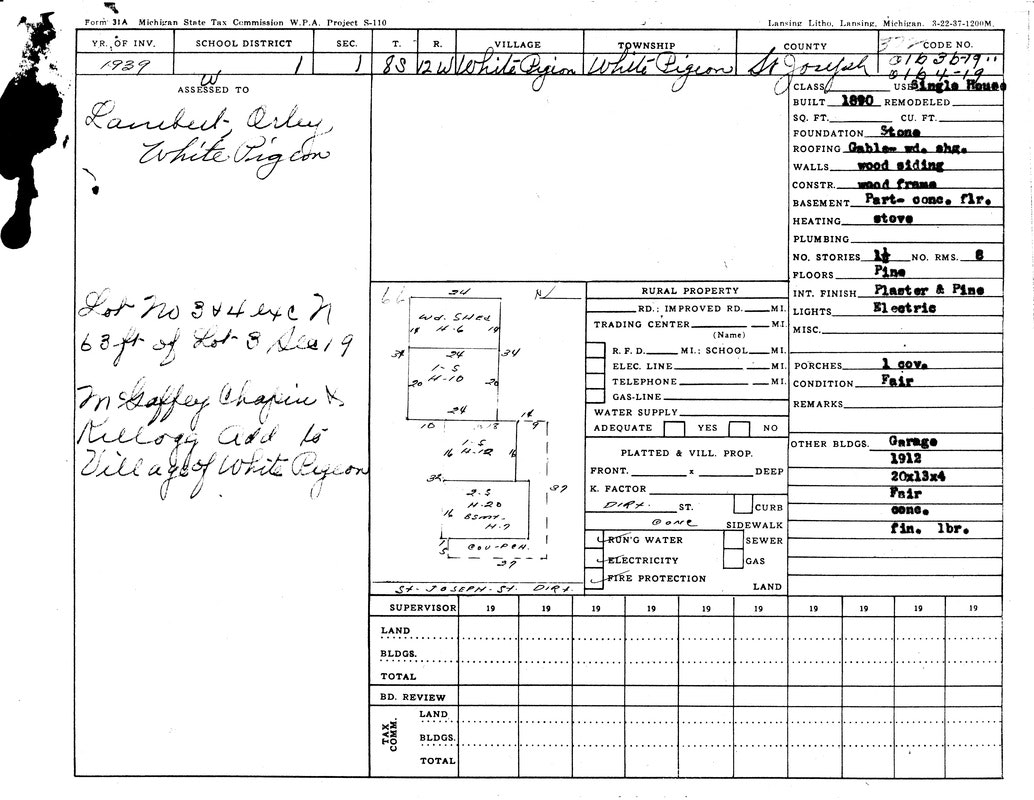 Form 31A Michigan State Tax Commission W.P.A. Project S-110
Lansing Litho, Lansing, Michigan. 3-22-37-1200M.
YR. OF INV. SCHOOL DISTRICT SEC. T. R. VILLAGE TOWNSHIP COUNTY CODE NO.
1939 W 1 1 8S 12W White Pigion White Pigeon St Joseph
ASSESSED TO
Lambert, Orley,
White Pigeon
Lot No 3 & 4 exc N
63 ft of Lot 3 Sec 19
McGaffey Chapin &
Killogg Add to
Village of White Pigeon
CLASS USE Single House
BUILT 1890 REMODELED
SQ. FT. CU. FT.
FOUNDATION Stone
ROOFING Gable- wd. shg.
WALLS wood siding
CONSTR. wood frame
BASEMENT Part- conc. flr.
HEATING stove
PLUMBING
NO. STORIES 1½ NO. RMS. 6
FLOORS Pine
INT. FINISH Plaster & Pine
LIGHTS Electric
MISC.
PORCHES 1 cov.
CONDITION Fair
REMARKS
OTHER BLDGS. Garage
1912
20x13x4
Fair
conc.
fin. lbr.
66 24 N
Wd. SHED
18 H-6 18
34 24 34
1-S
20 H-10 20
24 18
10 13 9
1-S
16 H-12 16
32
2-S
H-20
16 BSMT- 37
H-7
5 COV-PCH.
27
ST- JOSEPH-ST. DIRT.
RURAL PROPERTY
RD.; IMPROVED RD. MI.
TRADING CENTER MI.
(Name)
R. F. D. MI.; SCHOOL MI.
ELEC. LINE MI.
TELEPHONE MI.
GAS-LINE
WATER SUPPLY
ADEQUATE YES NO
PLATTED & VILL. PROP.
FRONT. x DEEP
K. FACTOR
DIRT. ST. CURB
CONC SIDEWALK
RUN'G WATER SEWER
ELECTRICITY GAS
FIRE PROTECTION LAND
SUPERVISOR 19 19 19 19 19 19 19 19 19 19
LAND
BLDGS.
TOTAL
BD. REVIEW
TAX COMM.
LAND
BLDGS.
TOTAL